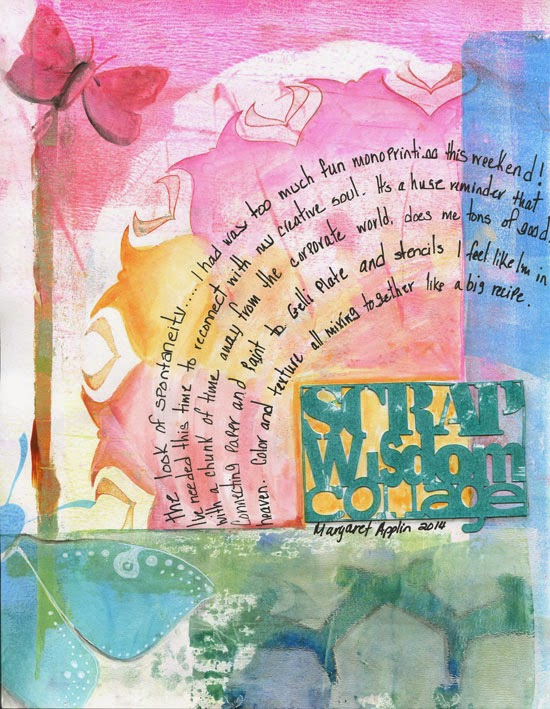 the look of spontaneity..... I had way too much fun monoprinting this weekend!
I've needed this time to reconnect with my creative soul. It's a huge reminder that
with a chunk of time away from the corporate world, does me tons of good.
Connecting Paper and Paint to Gelli Plate and stencils I feel like I'm in
heaven. Color and texture all mixing together like a big recipe.
SCRAP
Wisdom
collage
Margaret Applin 2014